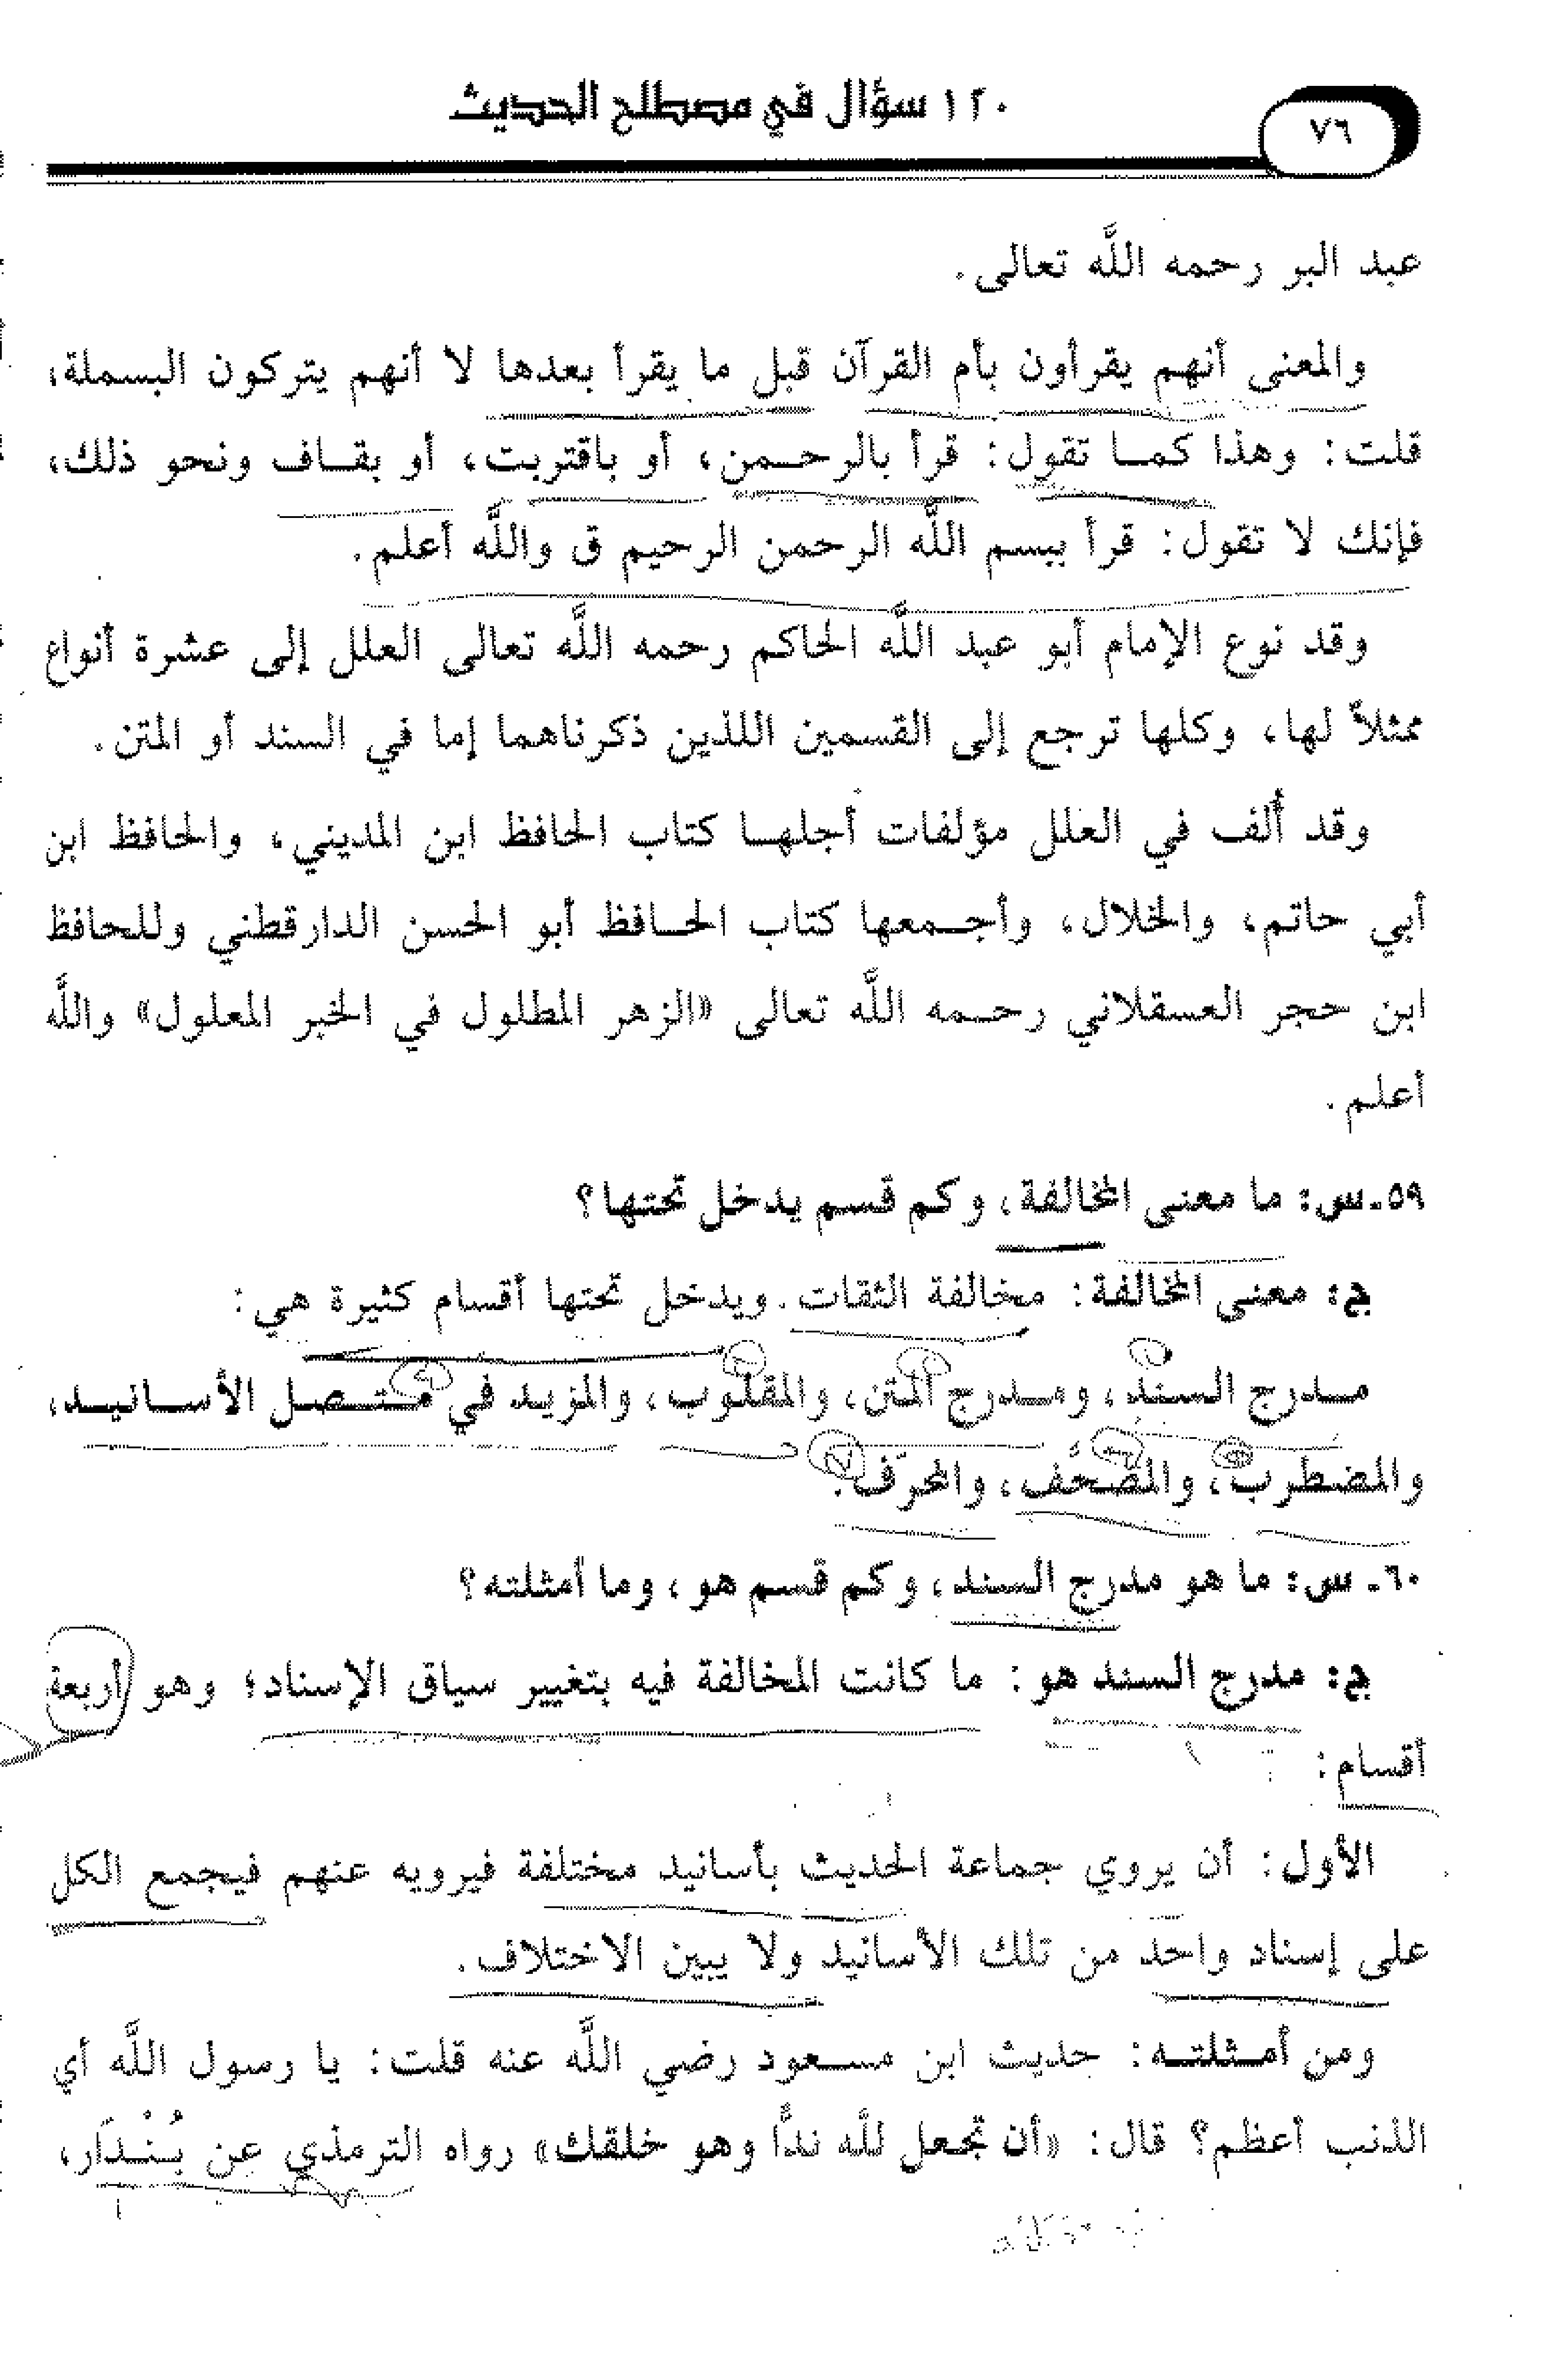 ١٢٠ سؤال في مصطلح الحديث
٧٦
عبد البر رحمه اللَّه تعالى.
والمعنى أنهم يقرأون بأم القرآن قبل ما يقرأ بعدها لا أنهم يتركون البسملة،
قلت: وهذا كمـا تقول: قرأ بالرحـمن، أو باقتربت، أو بقـاف ونحو ذلك،
فإنك لا تقول: قرأ ببسم اللَّه الرحمن الرحيم ق واللَّه أعلم.
وقد نوع الإمام أبو عبد اللَّه الحاكم رحمه اللَّه تعالى العلل إلى عشرة أنواع
ممثلاً لها، وكلها ترجع إلى القسمين اللذين ذكرناهما إما في السند أو المتن.
وقد أُلف في العلل مؤلفات أجلهـا كتاب الحافظ ابن المديني، والحافظ ابن
أبي حاتم، والخلال، وأجـمعها كتاب الحـافظ أبو الحسن الدارقطني وللحافظ
ابن حجر العسقلاني رحـمه اللَّه تعالى «الزهر المطلول في الخبر المعلول» واللَّه
أعلم.
٥٩ـ س: ما معنى المخالفة، وكم قسم يدخل تحتها؟
ج: معنى المخالفة: مخالفة الثقات. ويدخل تحتها أقسام كثيرة هي:
مـدرج السند، ومـدرج المتن، والمقلوب، والمزيـد في متـصـل الأسـانيـد،
والمضطرب، والمصَحَّف، والمحرّف.
٦٠ـ س: ما هو مدرج السند، وكم قسم هو، وما أمثلته؟
ج: مدرج السند هو: ما كانت المخالفة فيه بتغيير سياق الإسناد؛ وهو أربعة
أقسام:
الأول: أن يروي جماعة الحديث بأسانيد مختلفة فيرويه عنهم فيجمع الكل
على إسناد واحد من تلك الأسانيد ولا يبين الاختلاف.
ومن أمـثلتـه: حديث ابن مسـعود رضي اللَّه عنه قلت: يا رسول اللَّه أي
الذنب أعظم؟ قال: «أن تجعل للَّه ندًّا وهو خلقك» رواه الترمذي عن بُـنْـدَار،